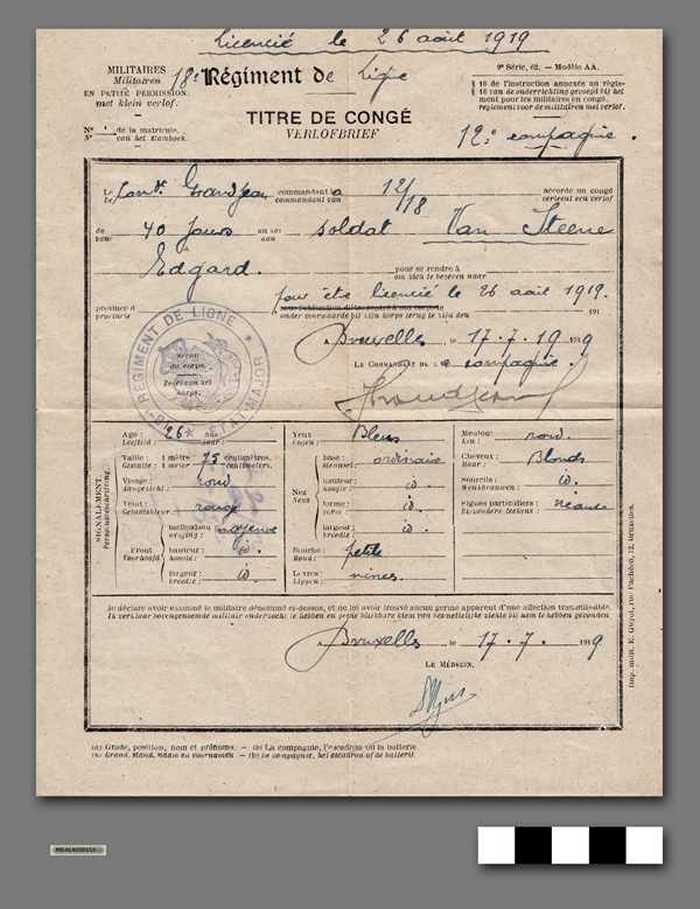 Licencié le 26 août 1919
MILITAIRES
Militaires
EN PETITE PERMISSION
met klein verlof.
18e Régiment de Ligne
9e Série, 62. — Modèle AA.
§ 16 de l'instruction annexée au règle-
§ 16 van de onderrichting gevoegd bij het
ment pour les militaires en congé.
reglement voor de militairen met verlof.
TITRE DE CONGÉ
VERLOFBRIEF
No de la matricule.
Nr van het stamboek.
12e compagnie.
Le Comdt Grandjean commandant la 12/18 accorde un congé
De commandant van verleent een verlof
de 40 jours au (a) soldat Van Steene
van aan
Edgard. pour se rendre à
om zich te begeven naar
pour être licencié le 26 août 1919.
province d
provincie onder voorwaarde bij zijn korps terug te zijn den 191
Bruxelles, 17.7.1919
LE COMMANDANT DE LA compagnie.
Grandjean
18e REGIMENT DE LIGNE * ETAT-MAJOR *
Sceau
du corps.
Zegel van het
korps.
SIGNALEMENT.
Persoonsbeschrijving.
Age : 26 ans
Leeftijd : jaar :
Taille : 1 mètre 75 centimètres.
Grootte : 1 meter centimeters.
Visage : rond
Aangezicht :
Teint : rouge
Gelaatskleur :
Front
Voorhoofd
inclinaison : moyenne
neiging :
hauteur : id.
hoogte :
largeur : id
breedte :
Yeux Bleus
Oogen :
Nez
Neus
base : ordinaire
hauteur : id.
hoogte :
forme : id.
vorm :
largeur : id.
breedte :
Bouche : petite
Mond :
Lèvres : minces.
Lippen :
Menton : rond.
Kin :
Cheveux : Blonds
Haar :
Sourcils : id.
Wenkbrauwen :
Signes particuliers : néant
Bijzondere teekens :
Je déclare avoir examiné le militaire dénommé ci-dessus, et ne lui avoir trouvé aucun germe apparent d'une affection transmissible.
Ik verklaar bovengenoemde militair onderzocht te hebben en geen blijkbare kiem van besmettelijke ziekte bij hem te hebben gevonden
Bruxelles, le 17.7.1919
LE MÉDECIN,
(a) Grade, position, nom et prénoms. — (b) La compagnie, l'escadron où la batterie.
(a) Graad, stand, naam en voornamen. — (b) De compagnie, het escadron of de batterij.
Imp. milit. E. Guyot, rue Pachéco, 12, Bruxelles.